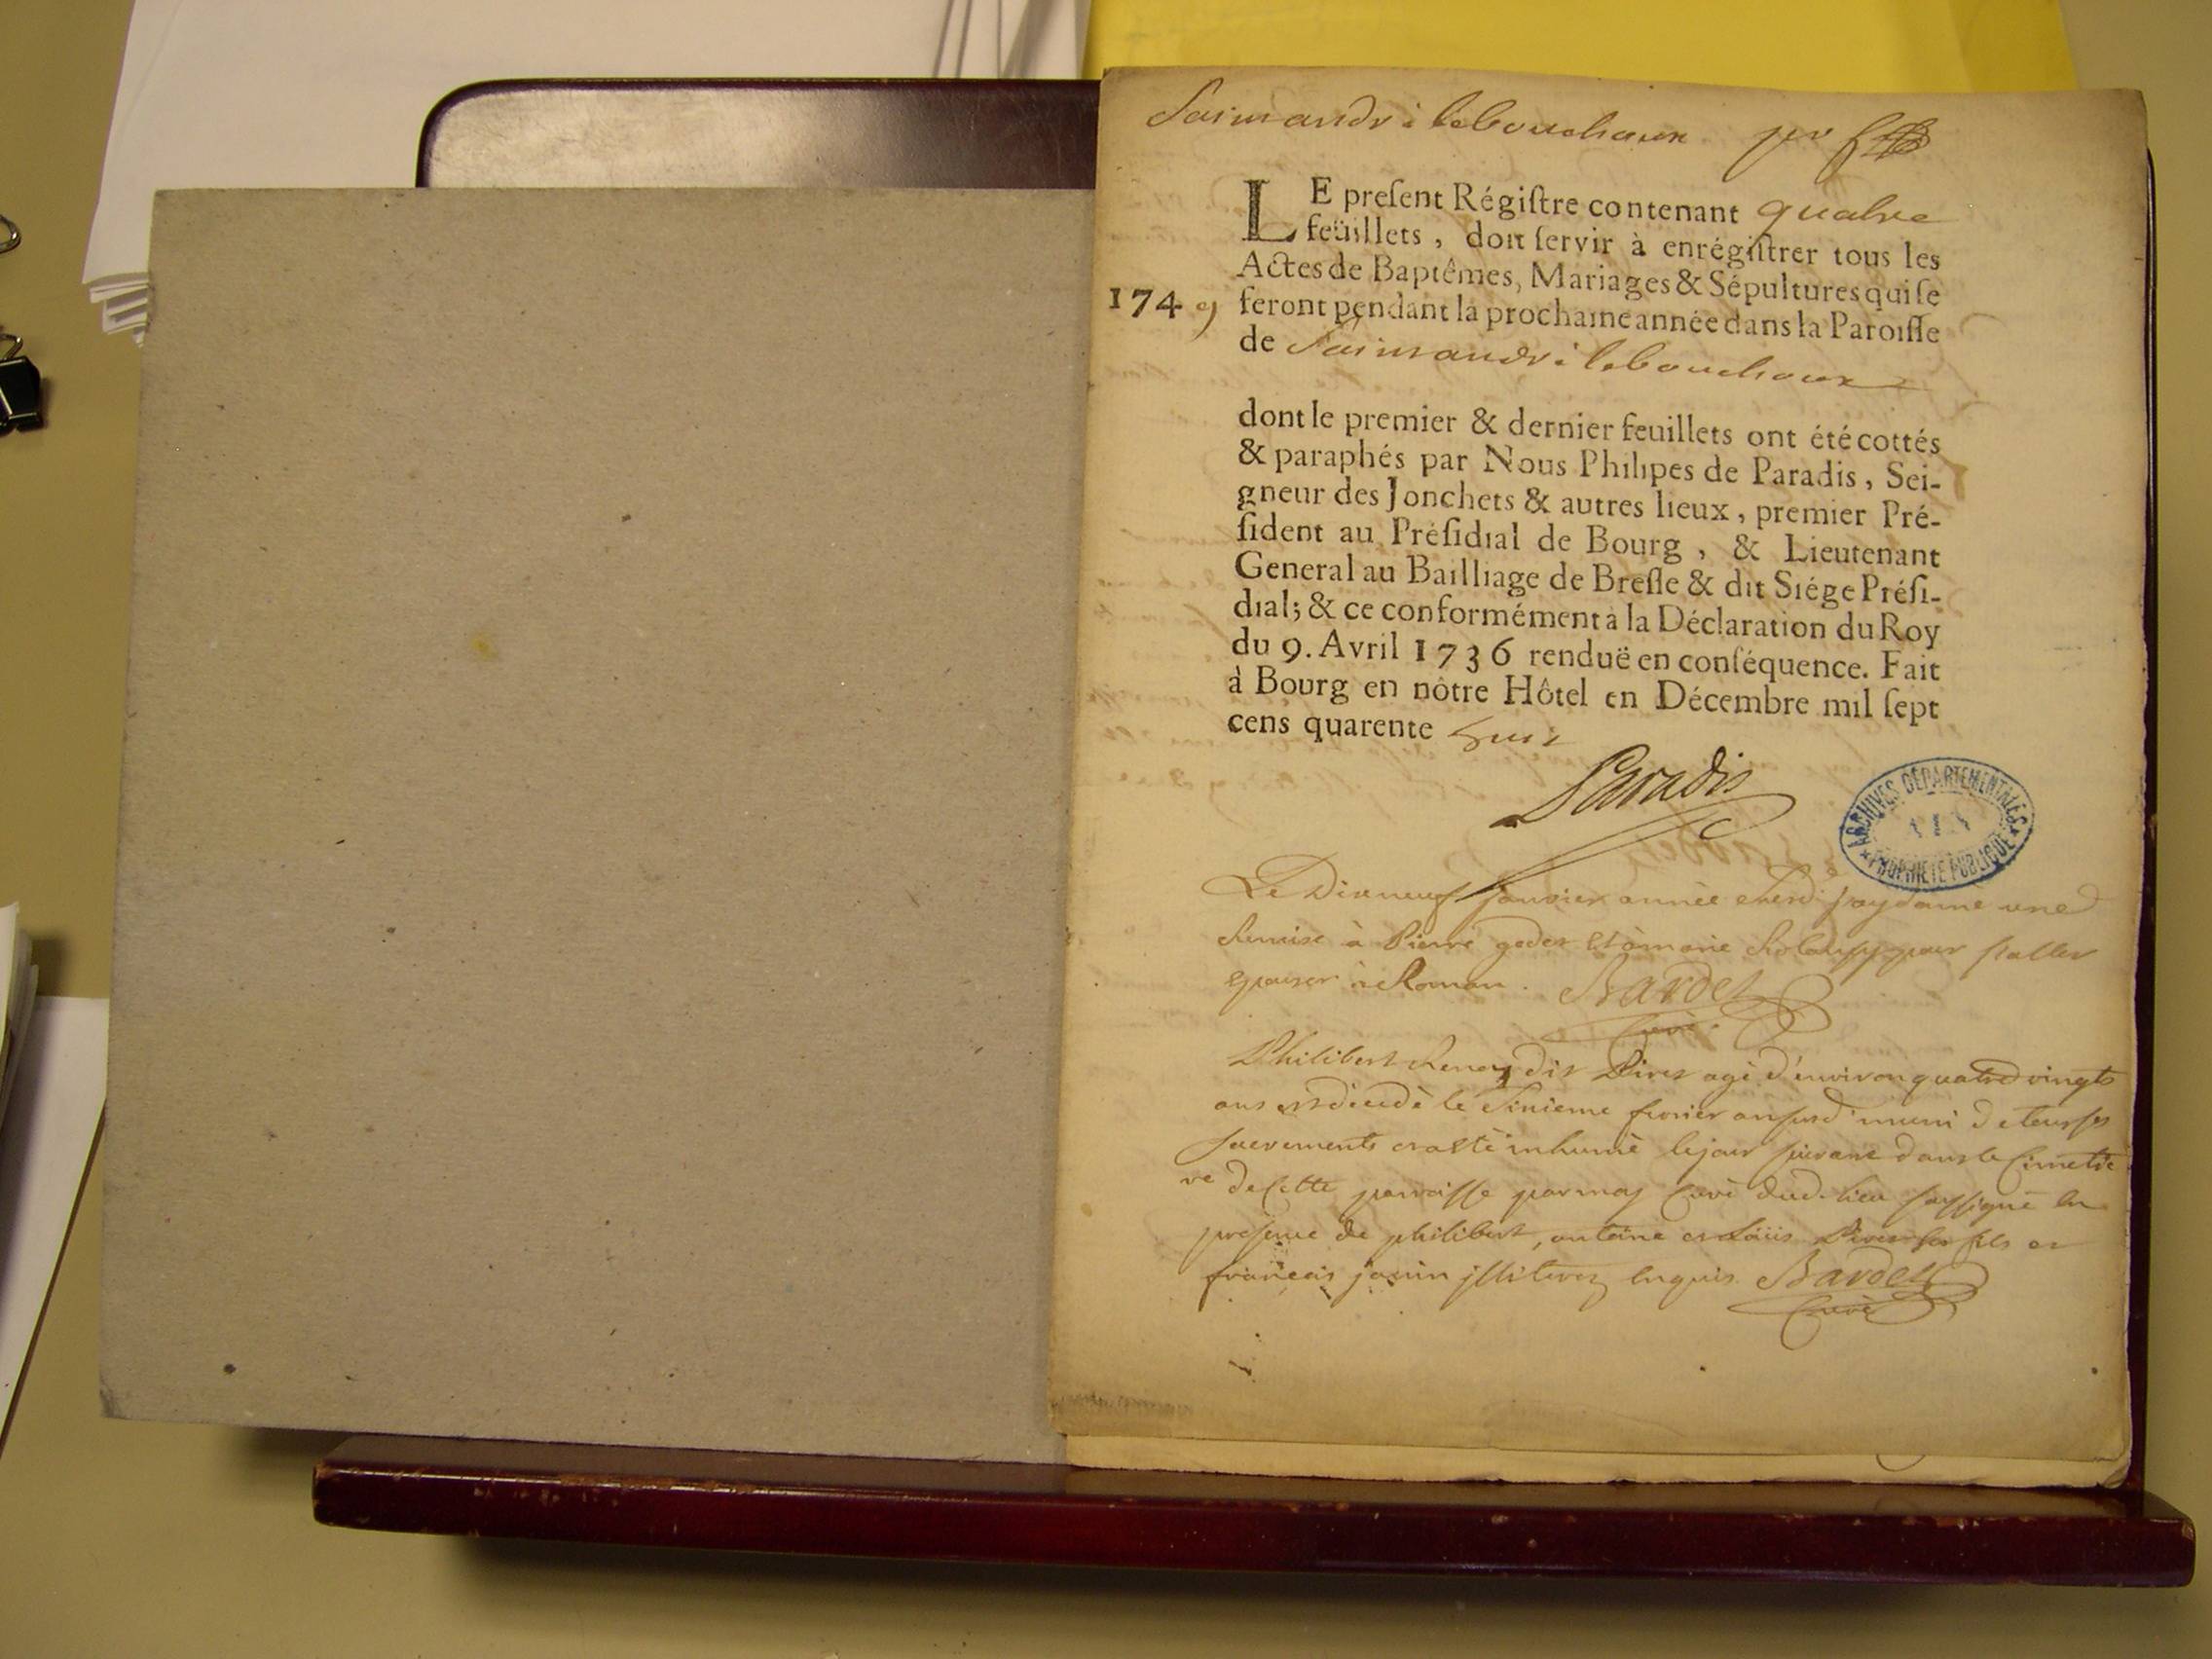 Saimandr i lebouchoux pr
LE preſent Régiſtre contenant quatre
feüillets, doit ſervir à enrégiſtrer tous les
Actes de Baptêmes, Mariages & Sépultures qui ſe
1749 feront pendant la prochaine année dans la Paroiſſe
de Saimandr i lebouchoux
dont le premier & dernier feuillets ont été cottés
& paraphés par Nous Philipes de Paradis, Sei-
gneur des Jonchets & autres lieux, premier Pré-
ſident au Préſidial de Bourg, & Lieutenant
General au Bailliage de Breſſe & dit Siége Préſi-
dial; & ce conformément à la Déclaration du Roy
du 9. Avril 1736 renduë en conſéquence. Fait
à Bourg en nôtre Hôtel en Décembre mil ſept
cens quarente huit
Paradis
ARCHIVES DÉPARTEMENTALES
AIN
PROPRIÉTÉ PUBLIQUE
Le Dixneuf janvier année jay donné une
remise à Pierre et à marie pour s'aller
epouser à Roman. Bardet
Curé
Philibert dit Pirez agé d'environ quatre vingts
ans est décédé le Sixieme fevrier an susd. muni de tous ses
sacrements et a esté inhumé le jour suivant dans le Cimetie
re de Cette parroisse par moy Curé dud. lieu soussigné En
presence de philibert, antoine et Loüis Pirez ses fils et
francois janin jlliterez Enquis. Bardet
Curé